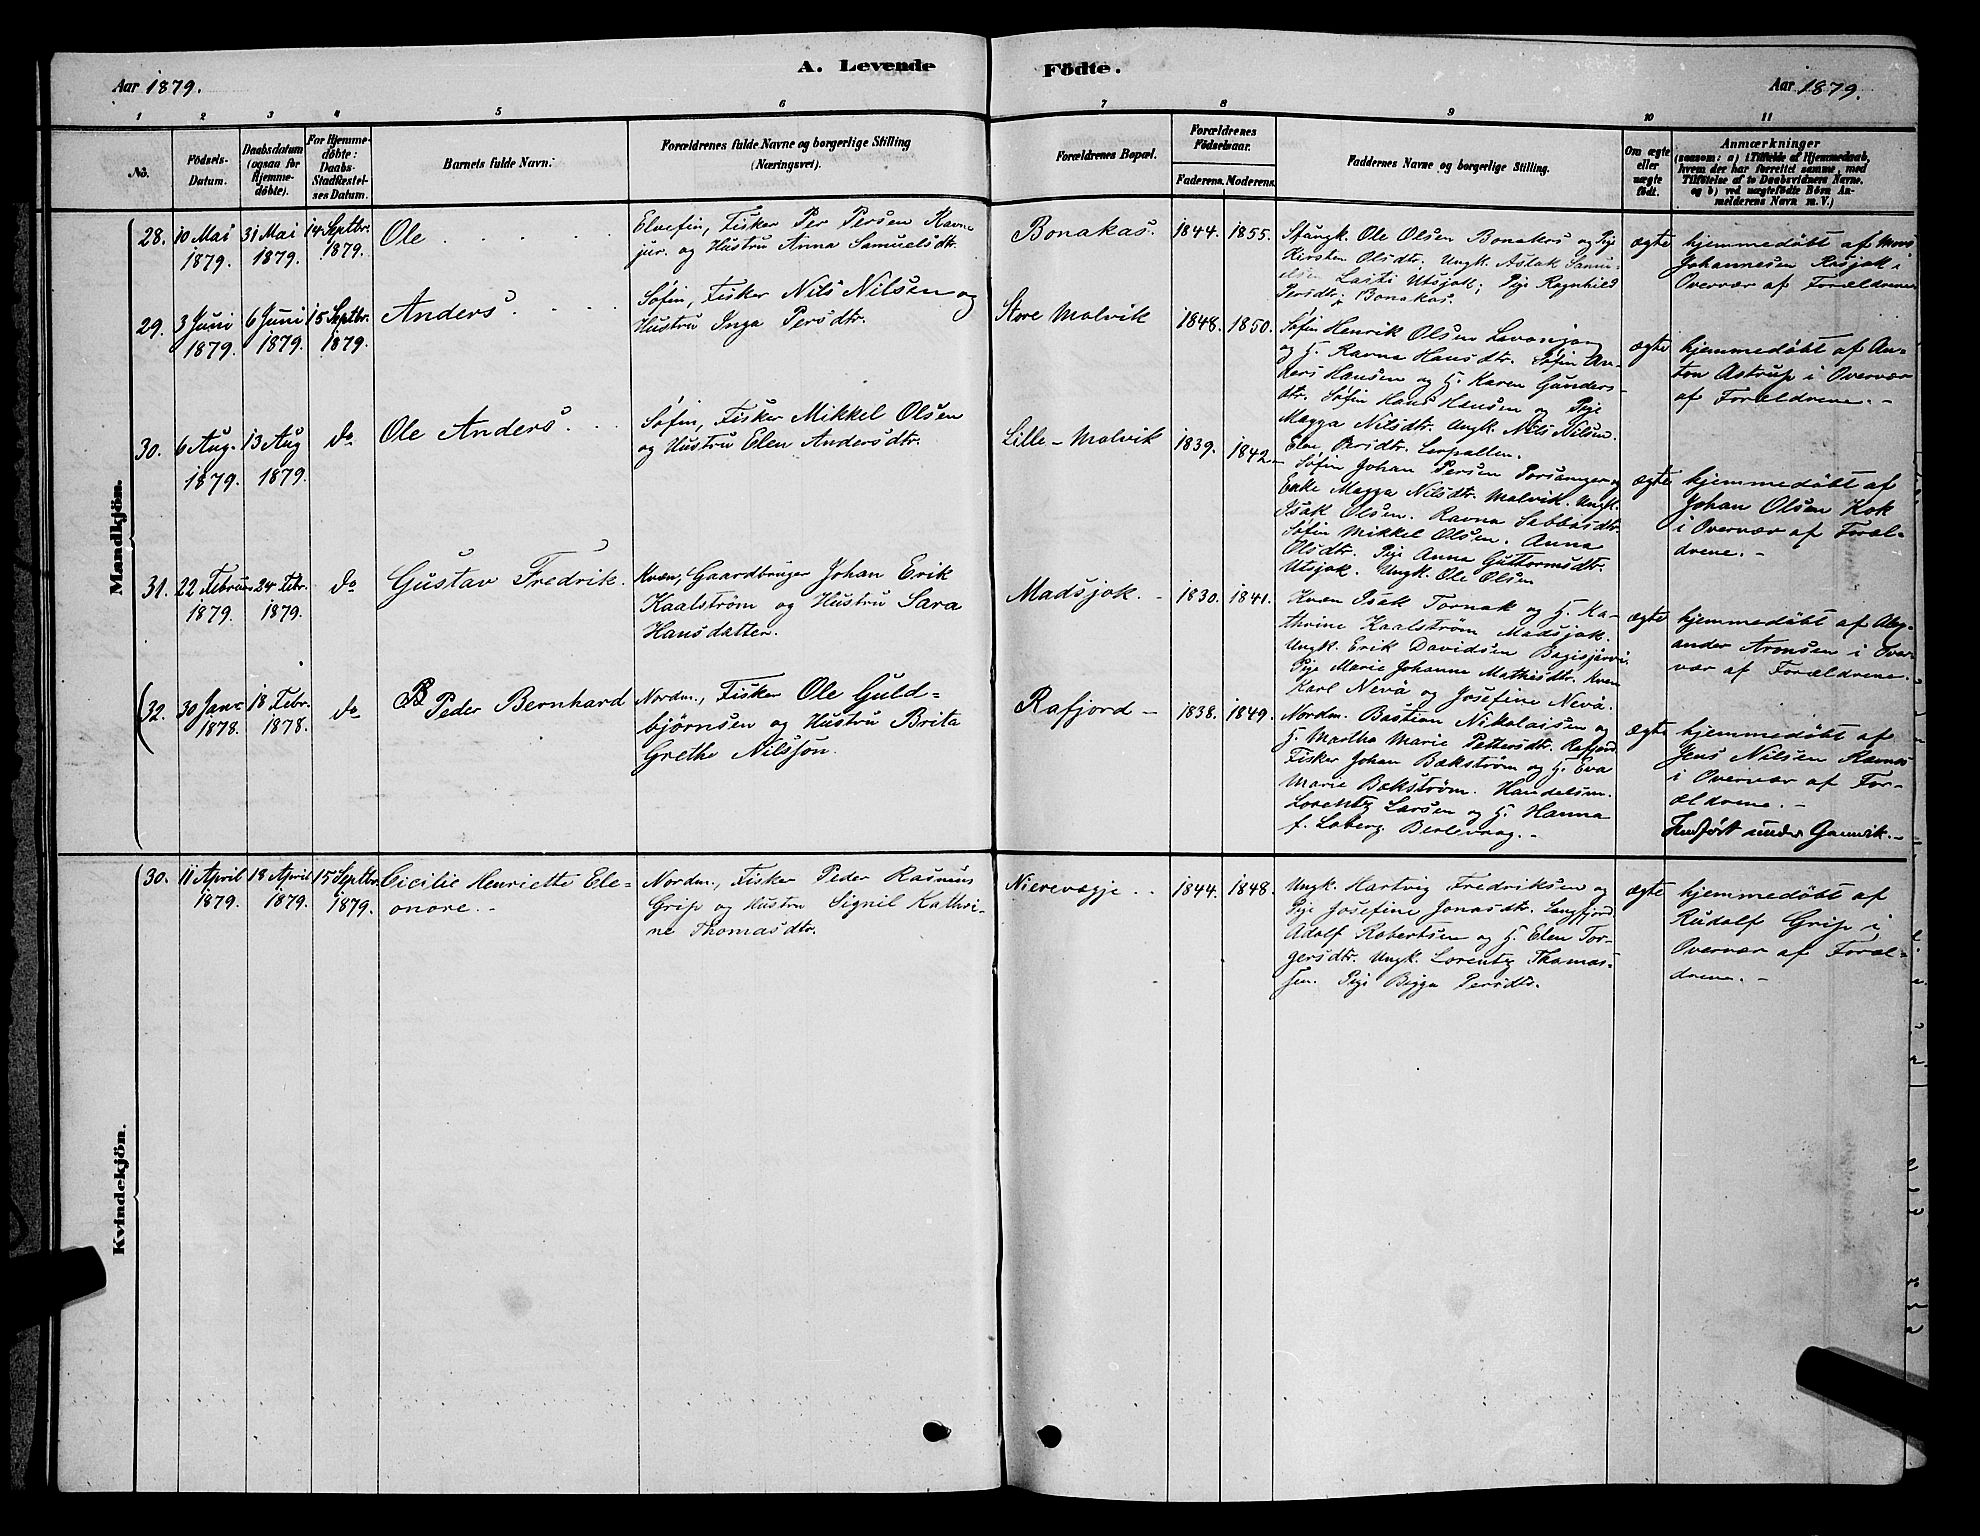 Aar 1879.
A. Levende
Födte.
Aar 1879.
1 2 3 4 5 6 7 8 9 10 11
No.
Födsels-
Datum.
Daabsdatum
(ogsaa for
Hjemme-
döbte).
For Hjemme-
døbte:
Daabs-
Stadfæstel-
ses Datum.
Barnets fulde Navn.
Forældrenes fulde Navne og borgerlige Stilling
(Næringsvei).
Forældrenes Bopæl.
Forældrenes
Födselsaar.
Faderens. Moderens.
Faddernes Navne og borgerlige Stilling.
Om ægte
eller
uægte
födt.
Anmærkninger
(saasom: a) i Tilfælde af Hjemmedaab,
hvem der har forrettet samme, med
Tilföielse af to Daabsvidners Navne,
og b) ved uægtefödte Börn An-
melderens Navn m. V.)
Mandkjön.
28.
10 Mai
1879.
31 Mai
1879.
14 Septbr.
1879.
Ole
Elvefin, Fisker Per Persen Ravna
jur. og Hustru Anna Samuelsdtr.
Bonakas.
1844.
1855.
Ole Olsen Bonakas og Pige
Kirsten Olsdtr. Ungk. Aslak Samu-
elsen Lasti Utsjok; Pige Ragnhild
Persdtr; Bonakas.
ægte
hjemmedøbt af Mons
Johannesen Rasjok i
Overvær af Forældrene
29.
3 Juni
1879.
6 Juni
1879.
15 Septbr.
1879.
Anders
Søfin, Fisker Nils Nilsen og
Hustru Inga Persdtr.
Store Molvik
1848.
1850.
Søfin Henrik Olsen
og H. Ravna Hansdtr. Søfin An-
ders Hansen og H. Karen Gunders-
dtr. Søfin Hans Hansen og Pige
Magga Nilsdtr. Ungk. Nils Nilsen.
Elen Persdtr. Lerpollen.
ægte
hjemmedøbt af An-
ton Astrup i Overvær
af Forældrene. -
30.
6 Aug.
1879.
13 Aug
1879.
do
Ole Anders
Søfin, Fisker Mikkel Olsen
og Hustru Elen Andersdtr.
Lille-Molvik
1839.
1842.
Søfin Johan Persen Porsanger og
Enke Magga Nilsdtr. Molvik. Ungk.
Isak Olsen. Ravna Sabbasdtr.
Søfin Mikkel Olsen. Anna
Olsdtr. Pige Anna Guttormsdtr.
Utsjok. Ungk. Ole Olsen
ægte
hjemmedøbt af
Johan Olsen Kok
i Overvær af Foræl-
drene. -
31.
22 Februar
1879.
24 Febr.
1879.
do
Gustav Fredrik.
Kvæn, Gaardbruger Johan Erik
Kaalström og Hustru Sara
Hansdatter.
Madsjok. -
1830.
1841.
Kvæn Isak Tornak og H. Ka-
thrine Kaalström Madsjok.
Ungk. Erik Davidsen Bagisjarvi.
Pige Marie Johanne Mathisdtr. Kvæn
Karl Nevä og Josefine Nevä.
ægte
hjemmedøbt af Alex-
ander Aronsen i Over-
vær af Forældrene.
32.
30 Jan.
1878.
18 Febr.
1878.
do
Peder Bernhard
Nordm., Fisker Ole Guld=
bjørnsen og Hustru Brita
Grethe Nilssøn.
Rafjord -
1838.
1849.
Nordm. Bastian Nikolaisen og
H. Martha Marie Pettersdtr. Rafjord
Fisker Johan Bækstrøm og H. Eva
Marie Bækstrøm. Handelsm.
Lorentz Larsen og H. Hanna
f. Loberg Berlevaag. -
ægte
hjemmedøbt af
Jens Nilsen
i Overvær af For-
ældrene. -
Indført under Gamvik. -
Kvindekjön.
30.
11 April
1879.
18 April
1879.
15 Septbr.
1879.
Cicilie Henriette Ele-
onore. -
Nordm., Fisker Peder Rasmus
Grip og Hustru Signil Kathri-
ne Thomasdtr.
Nierevagje
1844.
1848.
Ungk. Hartvig Fredriksen og
Pige Josefine Jonasdtr. Langfjord.
Adolf Robertsen og H. Elen Tor-
gersdtr. Ungk. Lorentz Thomas-
sen. Pige Bigga Persdtr.
ægte
hjemmedøbt af
Rudolf Grip i
Overvær af Foræl=
drene. -